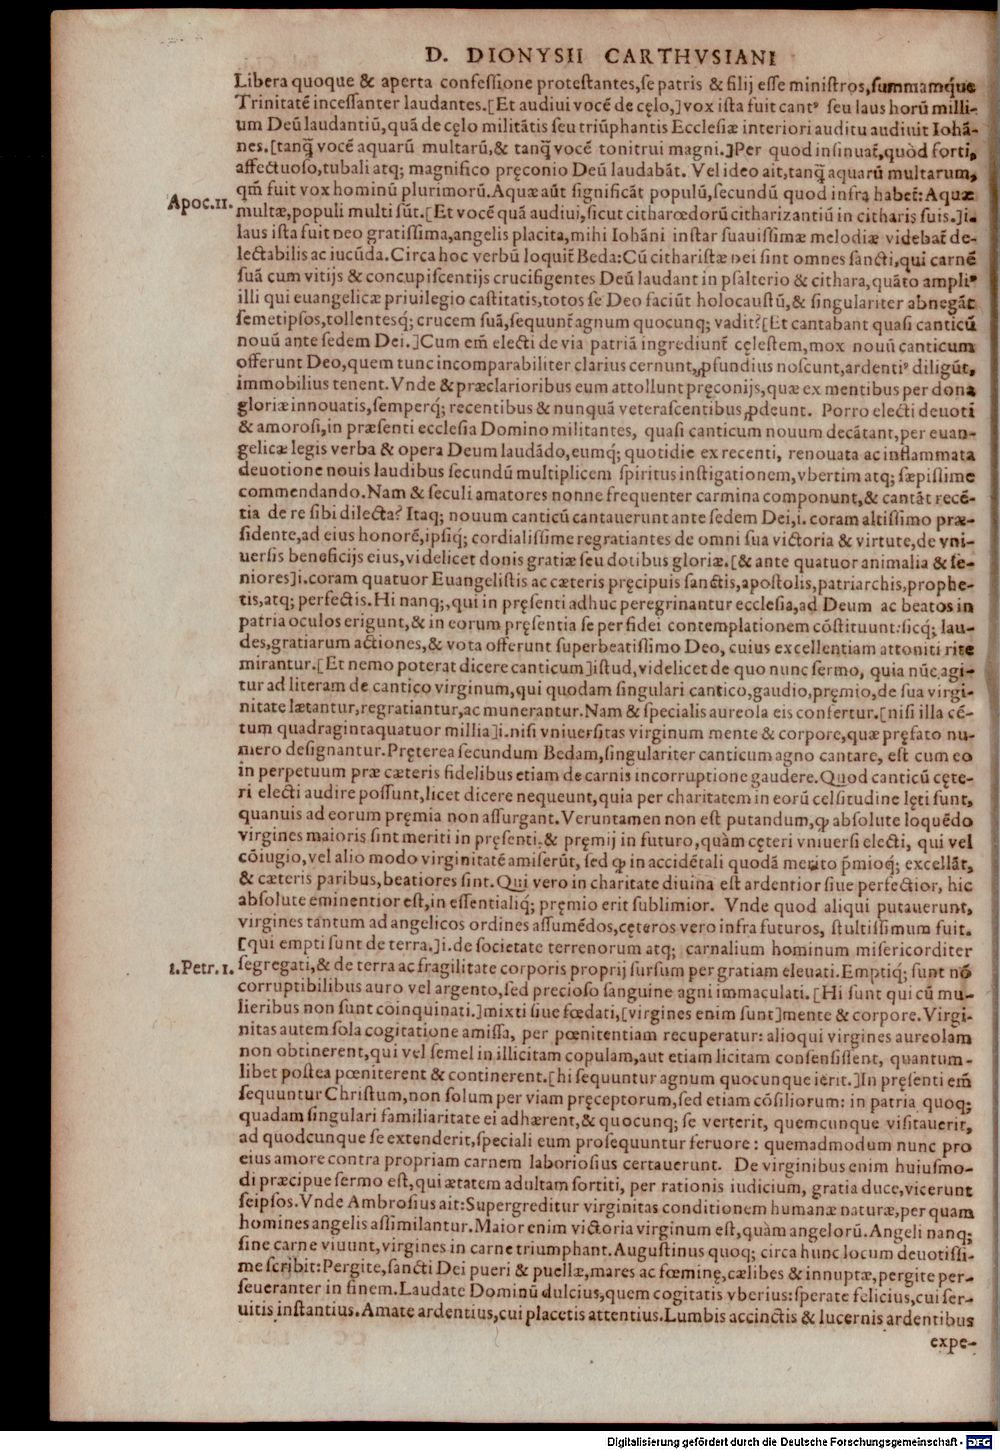 D. DIONYSII CARTHVSIANI
Libera quoque & aperta confessione protestantes,se patris & filij esse ministros,summamq́ue
Trinitatē incessanter laudantes.[Et audiui vocē de cęlo,]vox ista fuit cantꝰ seu laus horū milli-
um Deū laudantiū,quā de cęlo militātis seu triūphantis Ecclesiæ interiori auditu audiuit Iohā-
nes.[tanq̃ vocē aquarū multarū,& tanq̃ vocē tonitrui magni.]Per quod insinuat̃,quòd forti,
affectuoso,tubali atq; magnifico pręconio Deū laudabāt. Vel ideo ait,tanq̃ aquarū multarum,
qm̃ fuit vox hominū plurimorū.Aquæ aūt significāt populū,secundū quod infra habet̃:Aquæ
Apoc.11. multæ,populi multi sūt.[Et vocē quā audiui,sicut citharœdorū citharizantiū in citharis suis.]i.
laus ista fuit Deo gratissima,angelis placita,mihi Iohāni instar suauissimæ melodiæ videbat̃ de-
lectabilis ac iucūda.Circa hoc verbū loquit̃ Beda:Cū citharistæ Dei sint omnes sancti,qui carnē
suā cum vitijs & concupiscentijs crucifigentes Deū laudant in psalterio & cithara,quāto ampliꝰ
illi qui euangelicæ priuilegio castitatis,totos se Deo faciūt holocaustū,& singulariter abnegāt
semetipsos,tollentesq́; crucem suā,sequunt̃ agnum quocunq; vadit?[Et cantabant quasi canticū
nouū ante sedem Dei.]Cum em̃ electi de via patriā ingrediunt̃ cęlestem,mox nouū canticum
offerunt Deo,quem tunc incomparabiliter clarius cernunt,ꝓfundius noscunt,ardentiꝰ diligūt,
immobilius tenent.Vnde & præclarioribus eum attollunt pręconijs,quæ ex mentibus per dona
gloriæ innouatis,semperq́; recentibus & nunquā veterascentibus,ꝓdeunt. Porro electi deuoti
& amorosi,in præsenti ecclesia Domino militantes, quasi canticum nouum decātant,per euan-
gelicæ legis verba & opera Deum laudādo,eumq́; quotidie ex recenti, renouata ac inflammata
deuotione nouis laudibus secundū multiplicem spiritus instigationem,vbertim atq; sæpissime
commendando.Nam & seculi amatores nonne frequenter carmina componunt,& cantāt recē-
tia de re sibi dilecta? Itaq; nouum canticū cantauerunt ante sedem Dei,i. coram altissimo præ-
sidente,ad eius honorē,ipsiq́; cordialissime regratiantes de omni sua victoria & virtute,de vni-
uersis beneficijs eius,videlicet donis gratiæ seu dotibus gloriæ.[& ante quatuor animalia & se-
niores]i.coram quatuor Euangelistis ac cæteris pręcipuis sanctis,apostolis,patriarchis,prophe-
tis,atq; perfectis.Hi nanq;,qui in pręsenti adhuc peregrinantur ecclesia,ad Deum ac beatos in
patria oculos erigunt,& in eorum pręsentia se per fidei contemplationem cōstituunt:sicq́; lau-
des,gratiarum actiones,& vota offerunt superbeatissimo Deo, cuius excellentiam attoniti rite
mirantur.[Et nemo poterat dicere canticum]istud,videlicet de quo nunc sermo, quia nūc agi-
tur ad literam de cantico virginum,qui quodam singulari cantico,gaudio,pręmio,de sua virgi-
nitate lætantur,regratiantur,ac munerantur.Nam & specialis aureola eis confertur.[nisi illa cē-
tum quadragintaquatuor millia]i.nisi vniuersitas virginum mente & corpore,quæ pręfato nu-
mero designantur.Pręterea secundum Bedam,singulariter canticum agno cantare, est cum eo
in perpetuum præ cæteris fidelibus etiam de carnis incorruptione gaudere.Quod canticū cęte-
ri electi audire possunt,licet dicere nequeunt,quia per charitatem in eorū celsitudine lęti sunt,
quanuis ad eorum pręmia non assurgant.Veruntamen non est putandum,ꝙ absolute loquēdo
virgines maioris sint meriti in pręsenti,& pręmij in futuro,quàm cęteri vniuersi electi, qui vel
cōiugio,vel alio modo virginitatē amiserūt, sed ꝙ in accidētali quodā merito p̃mioq́; excellāt,
& cæteris paribus,beatiores sint.Qui vero in charitate diuina est ardentior siue perfectior, hic
absolute eminentior est,in essentialiq́; pręmio erit sublimior. Vnde quod aliqui putauerunt,
virgines tantum ad angelicos ordines assumēdos,cęteros vero infra futuros, stultissimum fuit.
[qui empti sunt de terra.]i.de societate terrenorum atq; carnalium hominum misericorditer
1.Petr.1. segregati,& de terra ac fragilitate corporis proprij sursum per gratiam eleuati.Emptiq́; sunt nō
corruptibilibus auro vel argento,sed precioso sanguine agni immaculati.[Hi sunt qui cū mu-
lieribus non sunt coinquinati.]mixti siue fœdati,[virgines enim sunt]mente & corpore.Virgi-
nitas autem sola cogitatione amissa, per pœnitentiam recuperatur: alioqui virgines aureolam
non obtinerent,qui vel semel in illicitam copulam,aut etiam licitam consensissent, quantum-
libet postea pœniterent & continerent.[hi sequuntur agnum quocunque ierit.]In pręsenti em̃
sequuntur Christum,non solum per viam pręceptorum,sed etiam cōsiliorum: in patria quoq;
quadam singulari familiaritate ei adhærent,& quocunq; se verterit, quemcunque visitauerit,
ad quodcunque se extenderit,speciali eum prosequuntur feruore: quemadmodum nunc pro
eius amore contra propriam carnem laboriosius certauerunt. De virginibus enim huiusmo-
di præcipue sermo est,qui ætatem adultam sortiti, per rationis iudicium, gratia duce,vicerunt
seipsos.Vnde Ambrosius ait:Supergreditur virginitas conditionem humanæ naturæ,per quam
homines angelis assimilantur.Maior enim victoria virginum est,quàm angelorū.Angeli nanq;
sine carne viuunt,virgines in carne triumphant.Augustinus quoq; circa hunc locum deuotissi-
me scribit:Pergite,sancti Dei pueri & puellæ,mares ac fœminę,cælibes & innuptæ,pergite per-
seueranter in finem.Laudate Dominū dulcius,quem cogitatis vberius:sperate felicius,cui ser-
uitis instantius.Amate ardentius,cui placetis attentius.Lumbis accinctis & lucernis ardentibus
expe-
Digitalisierung gefördert durch die Deutsche Forschungsgemeinschaft - DFG